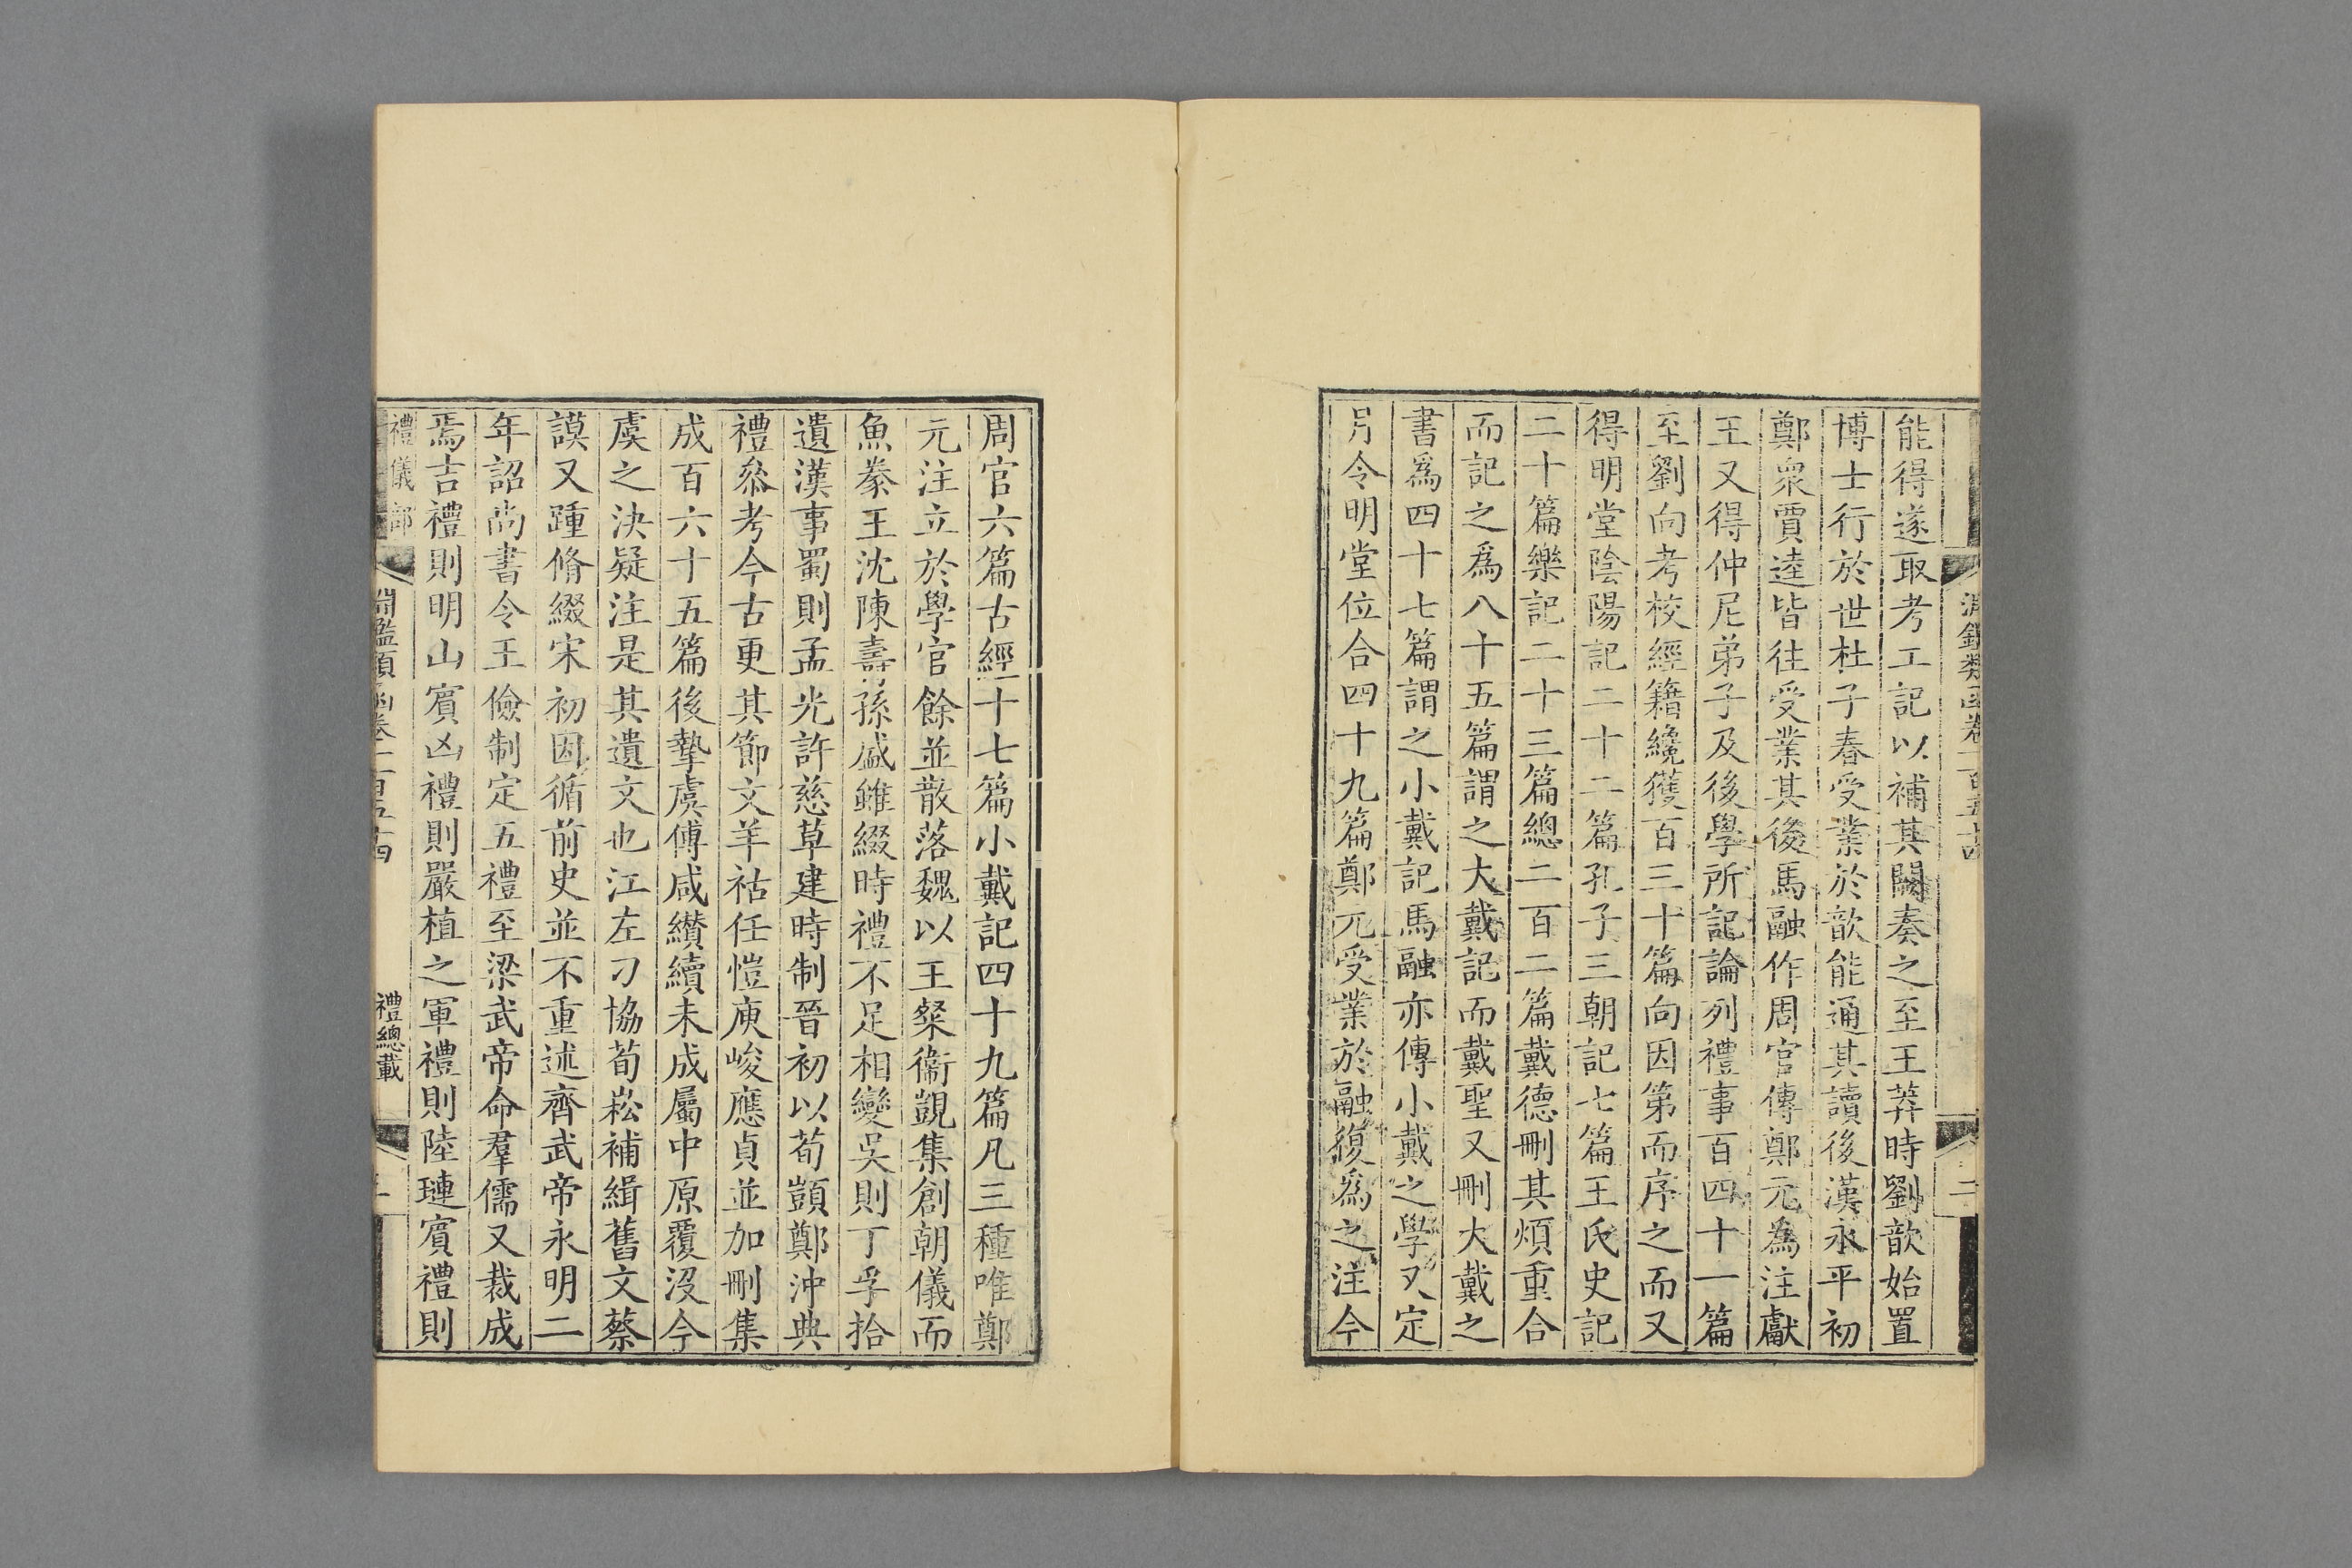 淵鑑類函卷一百五十四
二
能得遂取考工記以補其闕奏之至王莽時劉歆始置
博士行於世杜子春受業於歆能通其讀後漢永平初
鄭衆賈逵皆往受業其後馬融作周官傳鄭元為注獻
王又得仲尼弟子及後學所記論列禮事百四十一篇
至劉向考校經籍纔獲百三十篇向因第而序之而又
得明堂陰陽記二十二篇孔子三朝記七篇王氏史記
二十篇樂記二十三篇總二百二篇戴德刪其煩重合
而記之爲八十五篇謂之大戴記而戴聖又刪大戴之
書爲四十七篇謂之小戴記馬融亦傳小戴之學又定
月令明堂位合四十九篇鄭元受業於融復爲之注今
周官六篇古經十七篇小戴記四十九篇凡三種唯鄭
元注立於學官餘並散落魏以王粲衞覬集創朝儀而
魚豢王沈陳壽孫盛雖綴時禮不足相變吳則丁孚拾
遺漢事蜀則孟光許慈草建時制晉初以荀顗鄭沖典
禮叅考今古更其節文羊祜任愷庾峻應貞並加刪集
成百六十五篇後摯虞傅咸纉續未成屬中原覆沒今
虞之決疑注是其遺文也江左刁協荀崧補緝舊文蔡
謨又踵脩綴宋初因循前史並不重述齊武帝永明二
年詔尚書令王儉制定五禮至梁武帝命羣儒又裁成
焉吉禮則明山賓凶禮則嚴植之軍禮則陸璉賓禮則
禮儀部
淵鑑類函卷一百五十四 禮總載